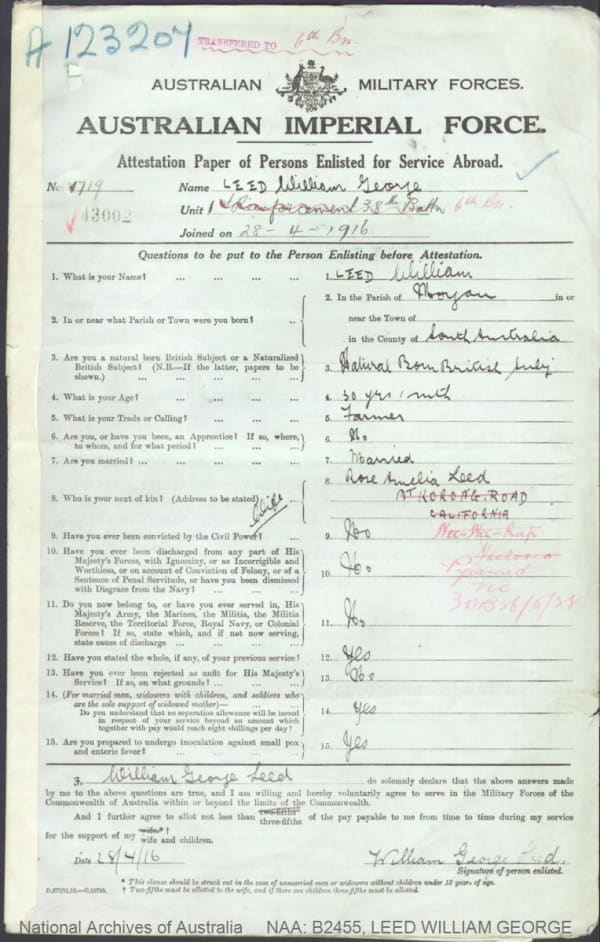 A 123207
TRANSFERRED TO 6th Bn.
AUSTRALIAN MILITARY FORCES.
AUSTRALIAN IMPERIAL FORCE.
Attestation Paper of Persons Enlisted for Service Abroad.
No. 1719 Name LEED William George
43002 Unit 1st Reinforcement 38th Battn 6th Bn.
Joined on 28-4-1916
Questions to be put to the Person Enlisting before Attestation.
1. What is your Name? ... ... ... ... 1. LEED William
2. In or near what Parish or Town were you born? ... 2. In the Parish of Morgan in or
near the Town of
in the County of South Australia
3. Are you a natural born British Subject or a Naturalized
British Subject? (N.B.—If the latter, papers to be
shown.) ... ... ... ... 3. Natural Born British Subj
4. What is your Age? ... ... ... ... 4. 30 yrs 1 mth
5. What is your Trade or Calling? ... ... ... 5. Farmer
6. Are you, or have you been, an Apprentice? If so, where,
to whom, and for what period? ... ... ... 6. No
7. Are you married? ... ... ... ... 7. Married
8. Who is your next of kin? (Address to be stated) ... 8. Rose Amelia Leed
Wife
KORONG ROAD
CALIFORNIA
Wee-Wee-Rup
Victoria
Pyramid
9. Have you ever been convicted by the Civil Power? ... 9. No
10. Have you ever been discharged from any part of His
Majesty's Forces, with Ignominy, or as Incorrigible and
Worthless, or on account of Conviction of Felony, or of a
Sentence of Penal Servitude, or have you been dismissed
with Disgrace from the Navy? ... ... ... 10. No
11. Do you now belong to, or have you ever served in, His
Majesty's Army, the Marines, the Militia, the Militia
Reserve, the Territorial Force, Royal Navy, or Colonial
Forces? If so, state which, and if not now serving,
state cause of discharge ... ... ... 11. No
12. Have you stated the whole, if any, of your previous service? 12. Yes
13. Have you ever been rejected as unfit for His Majesty's
Service? If so, on what grounds? ... ... ... 13. No
14. (For married men, widowers with children, and soldiers who
are the sole support of widowed mother)—
Do you understand that no separation allowance will be issued
in respect of your service beyond an amount which
together with pay would reach eight shillings per day? 14. Yes
15. Are you prepared to undergo inoculation against small pox
and enteric fever? ... ... ... ... 15. Yes
I, William George Leed do solemnly declare that the above answers made
by me to the above questions are true, and I am willing and hereby voluntarily agree to serve in the Military Forces of the
Commonwealth of Australia within or beyond the limits of the Commonwealth.
And I further agree to allot not less than two-fifths three-fifths of the pay payable to me from time to time during my service
for the support of my wife* † wife and children.
Date 28/4/16 William George Leed.
Signature of person enlisted.
* This clause should be struck out in the case of unmarried men or widowers without children under 18 year of age.
† Two-fifths must be allotted to the wife, and if there are children three-fifths must be allotted.
National Archives of Australia NAA: B2455, LEED WILLIAM GEORGE